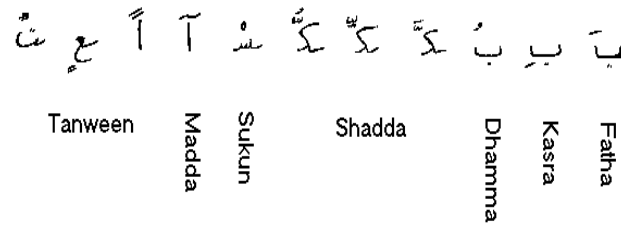 بَ بِ بُ كَّ كِّ كُّ سْ آ اً عٍ تٌ
Tanween Madda Sukun Shadda Dhamma Kasra Fatha